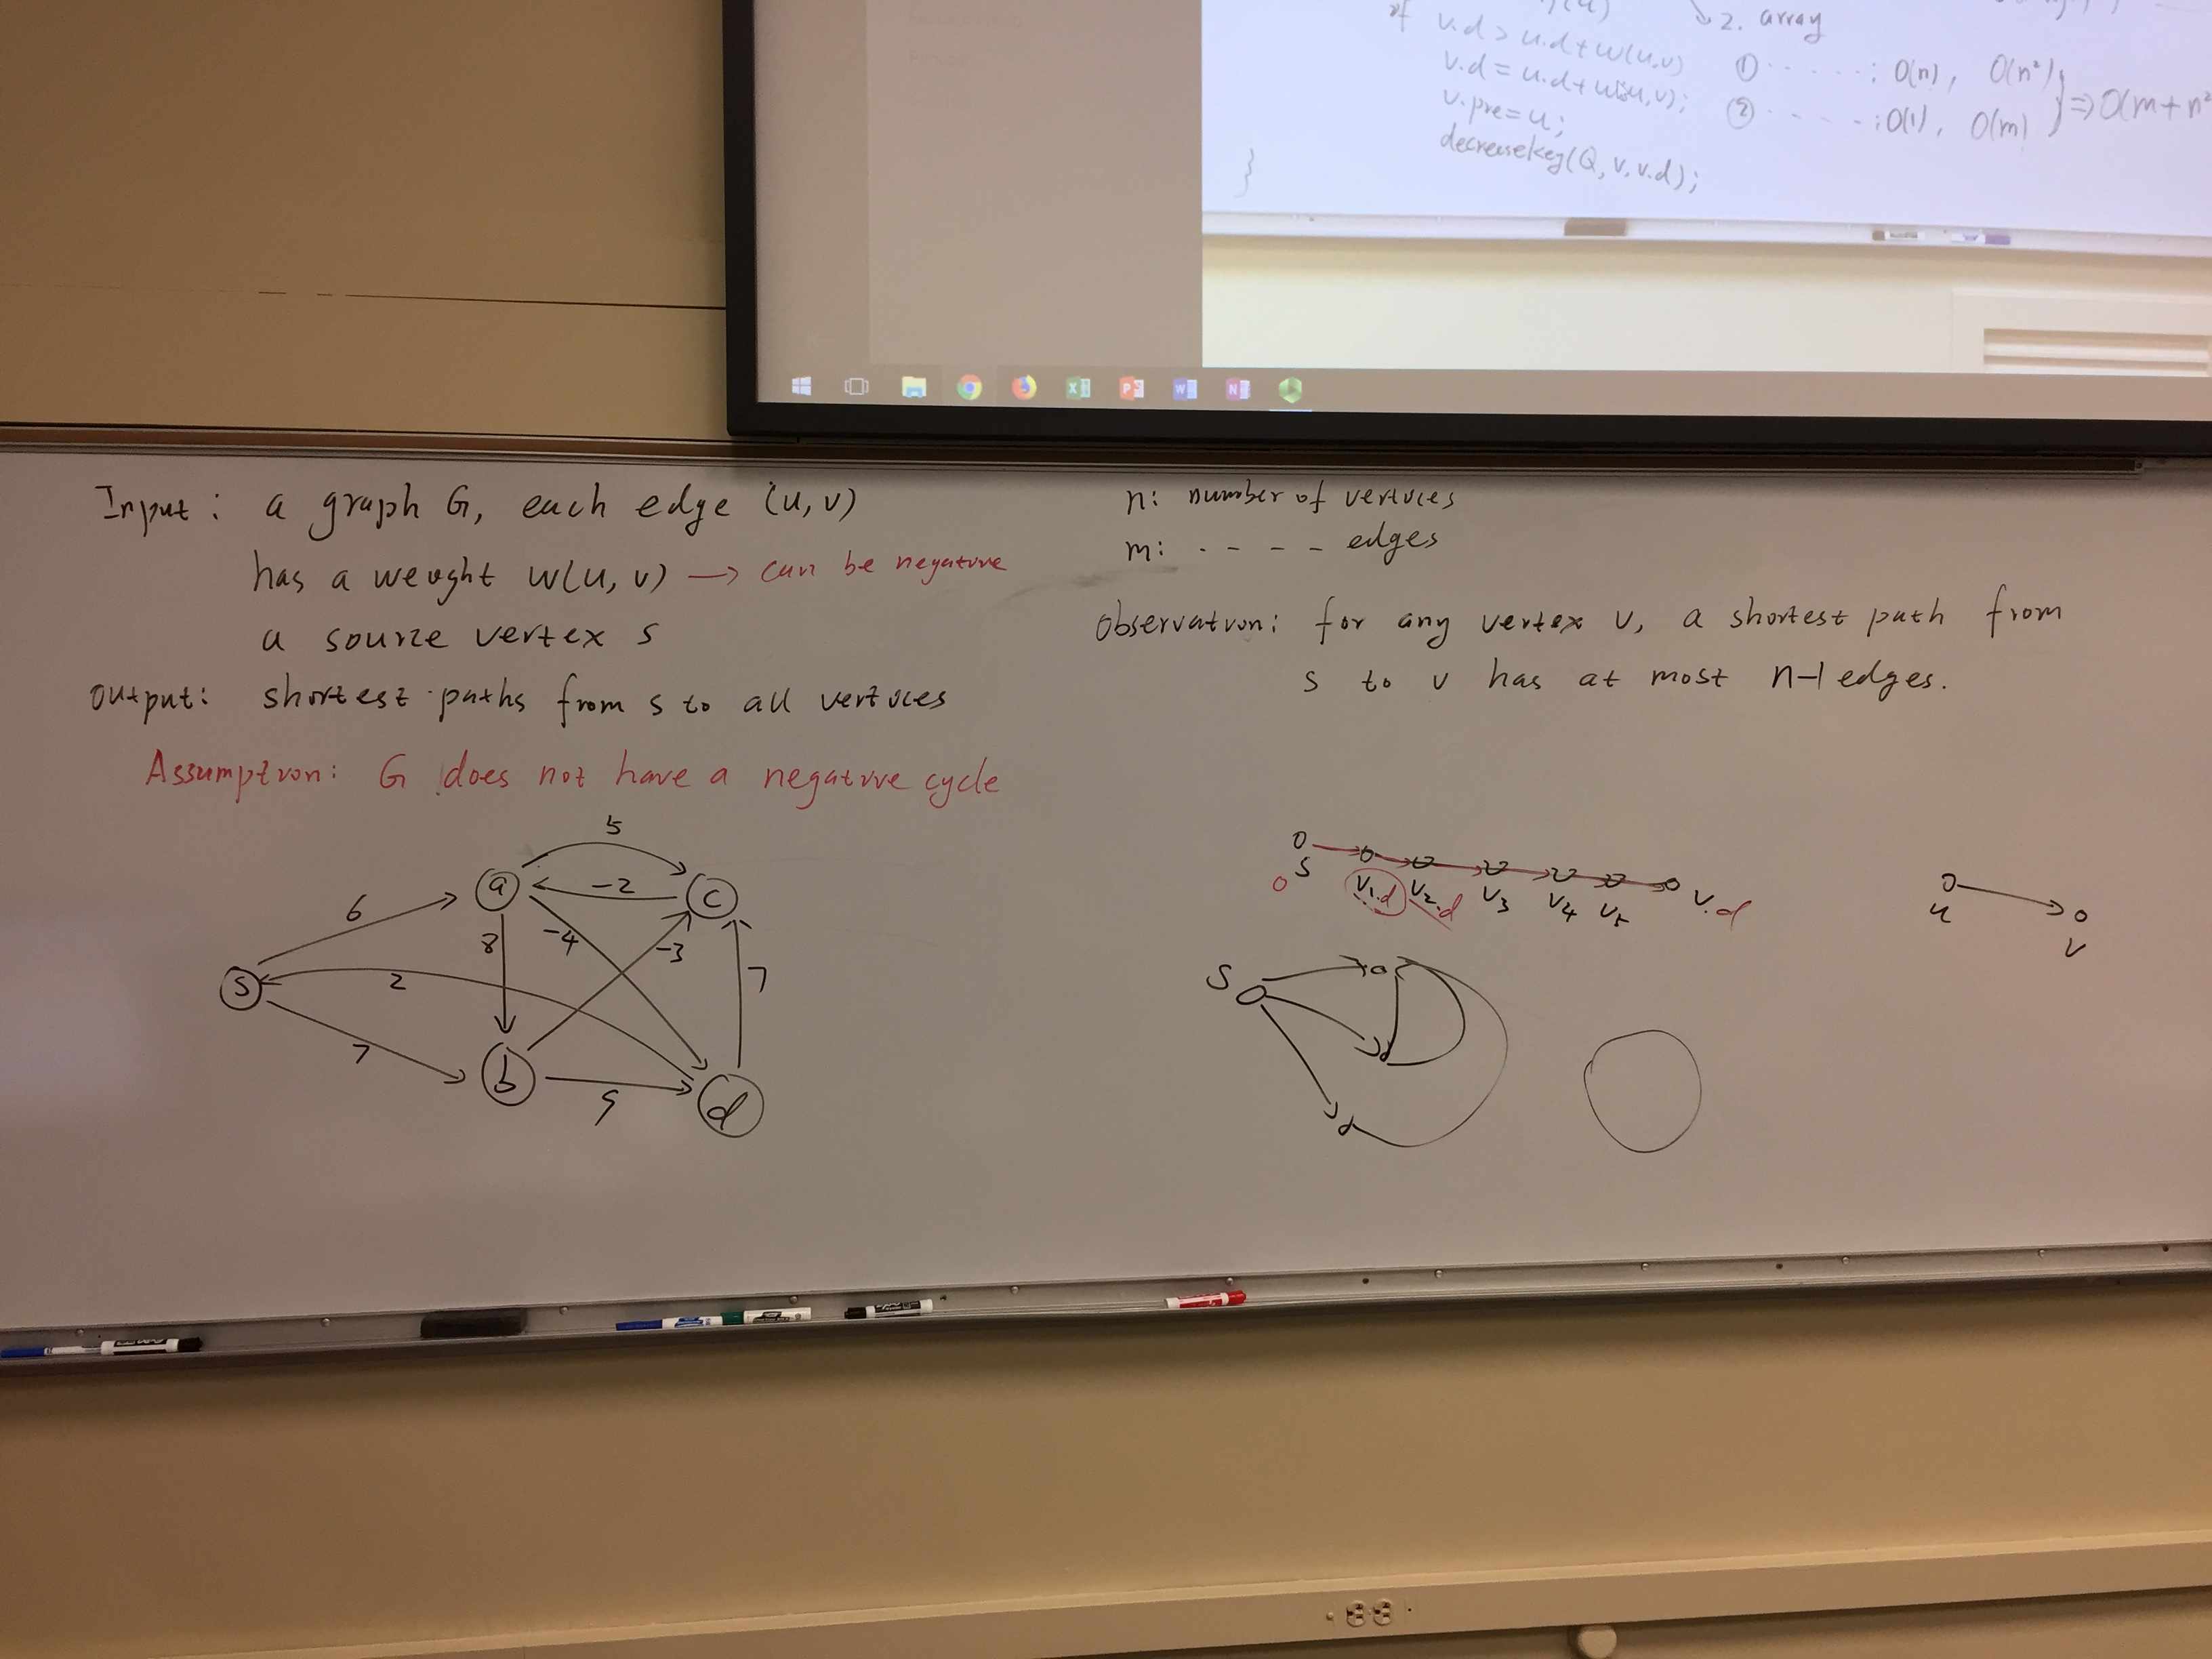 2. array
if v.d > u.d + w(u,v)
v.d = u.d + w(u,v);
v.pre = u;
decreasekey(Q, v, v.d);
}
① · · · · · : O(n), O(n²)
② · · · · : O(1), O(m)
} ⇒ O(m+n²
Input: a graph G, each edge (u,v)
has a weight w(u,v) → can be negative
a source vertex s
output: shortest paths from s to all vertices
Assumption: G does not have a negative cycle
n: number of vertices
m: - - - - edges
observation: for any vertex v, a shortest path from
s to v has at most n-1 edges.
5
a
-2
c
6
8
-4
-3
7
s
2
7
b
9
d
s
0
v1.d v2.d v3 v4 v5 v.d
u
v
S